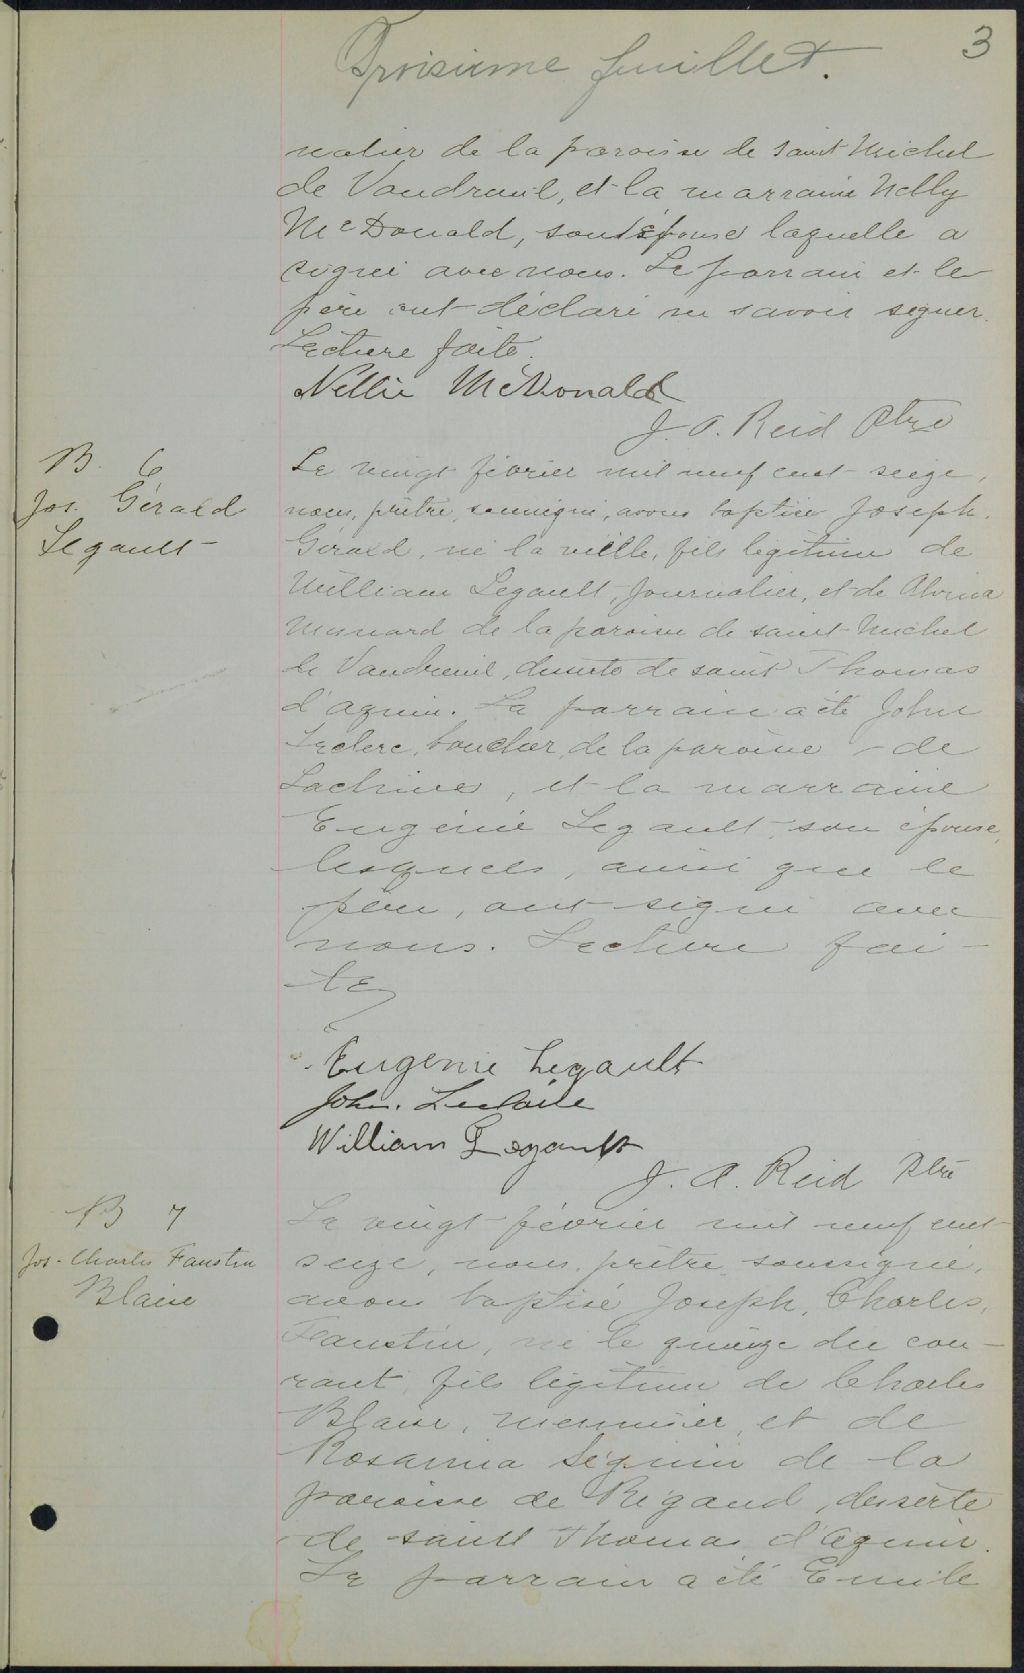 3
Troisième feuillet.
nalier de la paroisse de saint Michel
de Vaudreuil, et la marraine Nelly
McDonald, son épouse laquelle a
signé avec nous. Le parrain et le
père ont déclaré ne savoir signer.
Lecture faite.
Nellie McDonald
J. A. Reid Ptre
B. 6
Jos. Gérald
Legault
Le vingt février mil neuf cent seize,
nous, prêtre, soussigné, avons baptisé Joseph,
Gérald, né la veille, fils légitime de
William Legault, journalier, et de
Menard de la paroisse de saint Michel
de Vaudreuil, desserte de saint Thomas
d'Aquin. Le parrain a été John
Leclerc, boucher, de la paroisse de
Lachine, et la marraine
Eugénie Legault, son épouse,
lesquels, ainsi que le
père, ont signé avec
nous. Lecture fai-
te
Eugenie Legault
John. Leclaire
William Legault
J. A. Reid Ptre
B 7
Jos. Charles Faustin
Blaise
Le vingt février mil neuf cent
seize, nous, prêtre soussigné,
avons baptisé Joseph, Charles,
Faustin, né le quinze du cou-
rant, fils légitime de Charles
Blaise, menuisier, et de
Rosanna Séguin de la
paroisse de Rigaud, desserte
de saint Thomas d'Aquin.
Le parrain a été Emile